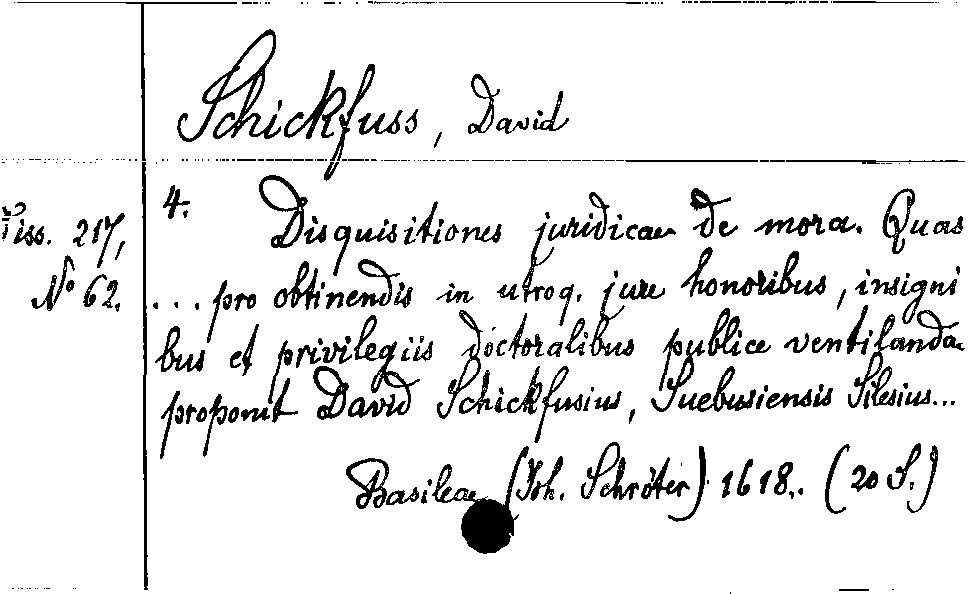 Schickfuss, David
4.
Diss. 217,
Disquisitiones juridicae de mora. Quas
No 62.
... pro obtinendis in utroq. jure honoribus, insigni
bus et privilegiis doctoralibus publice ventilanda
proponit David Schickfusius, Suebusiensis Silesius...
Basileae (Joh. Schröter) 1618. (20 S.)